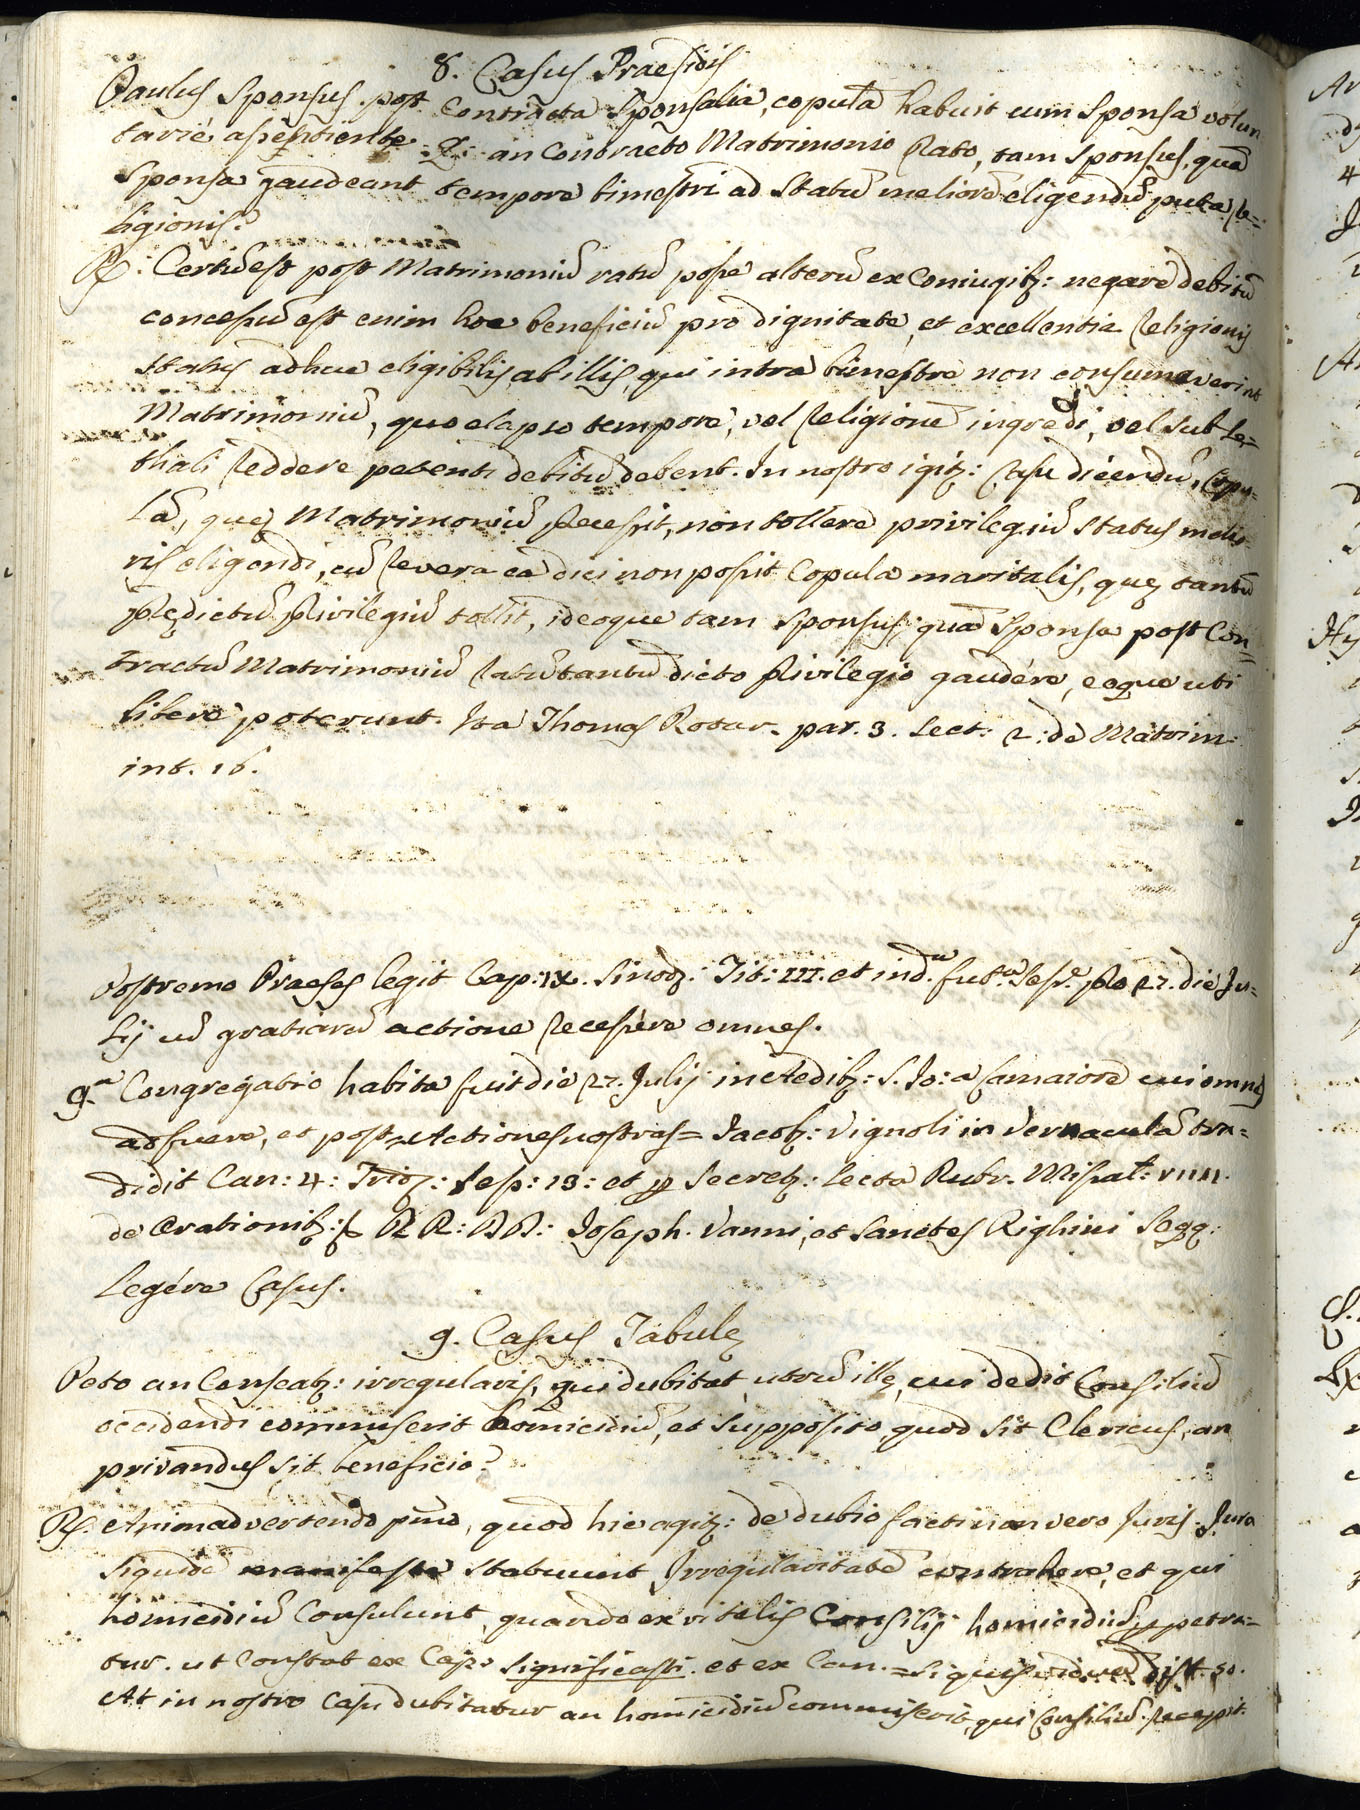 8. Casus Praesidis
Paulus Sponsus post contracta Sponsalia, copulã habuit cum Sponsa volun
tariè assentiente. Q: an Contracto Matrimonio Rato, tam Sponsus, quã
Sponsa gaudeant tempore bimestri ad Statũ meliorẽ eligendũ puta Re=
ligionis?
R: Certũ est post Matrimoniũ ratũ posse alterũ ex Coniugib: negare debitũ
concessũ est enim hoc beneficiũ pro dignitate, et excellentia Religionis
status adhuc eligibilis ab illis, qui intra bimestre non consumaverint
Matrimoniũ, quo elapso tempore, vel Religionẽ ingredi, vel sub le=
thali reddere petenti debitũ debent. In nostro igit: Casu dicendũ, Copu=
lã, quę Matrimoniũ pręcessit, non tollere privilegiũ status melio=
ris eligendi, cũ revera ea dici non possit Copula maritalis, quę tantũ
prędictũ privilegiũ tollit, ideoque tam Sponsus, quã Sponsa post Con=
tractũ Matrimoniũ ratũ tantũ dicto privilegio gaudére, eoque uti
libere poterunt. Ita Thomas Rotar. par. 3. Sect: 2: de Matrim:
int. 16.
Postremo Praeses legit Cap: IX. Sinod: Tit: III. et ind.ª fut.ª Sess.e pro 27. die Ju=
lij cũ gratiarũ actione recessére omnes.
9.ª Congregatio habita fuit die 27. Julij in Aedib: S. Jo: a Camaiore cui omnes
adfuere, et post Actiones nostras = Jacob: Vignoli in Vernaculã tra=
didit Can: 4: Trid: Sess: 13: et p Secret: lecta Rubr. Missal: VIIII.
de Orationib: RR: DD: Joseph. Vanni, et Sanctes Righini Seqq:
legére Casus.
9. Casus Tabulę
Peto an Censeat: irregularis, qui dubitat, utrũ ille, cui dedit Consiliũ
occidendi commiserit homicidiũ, et supposito, quod sit Clericus, an
privandus sit beneficio?
R: Animadvertendo primo, quod hic agit: de dubio facti non vero Juris. Jura
siquidẽ manifeste statuunt Irregularitatẽ contrahere, et qui
homicidiũ Consulunt, quando ex vi talis Consilij homicidiũ ppetra=
tur. ut Constat ex Cap. significasti. et ex Can. = Si quis viduã dist. 50.
At in nostro casu dubitatur an homicidiũ commiserit, qui Consiliũ recepit.